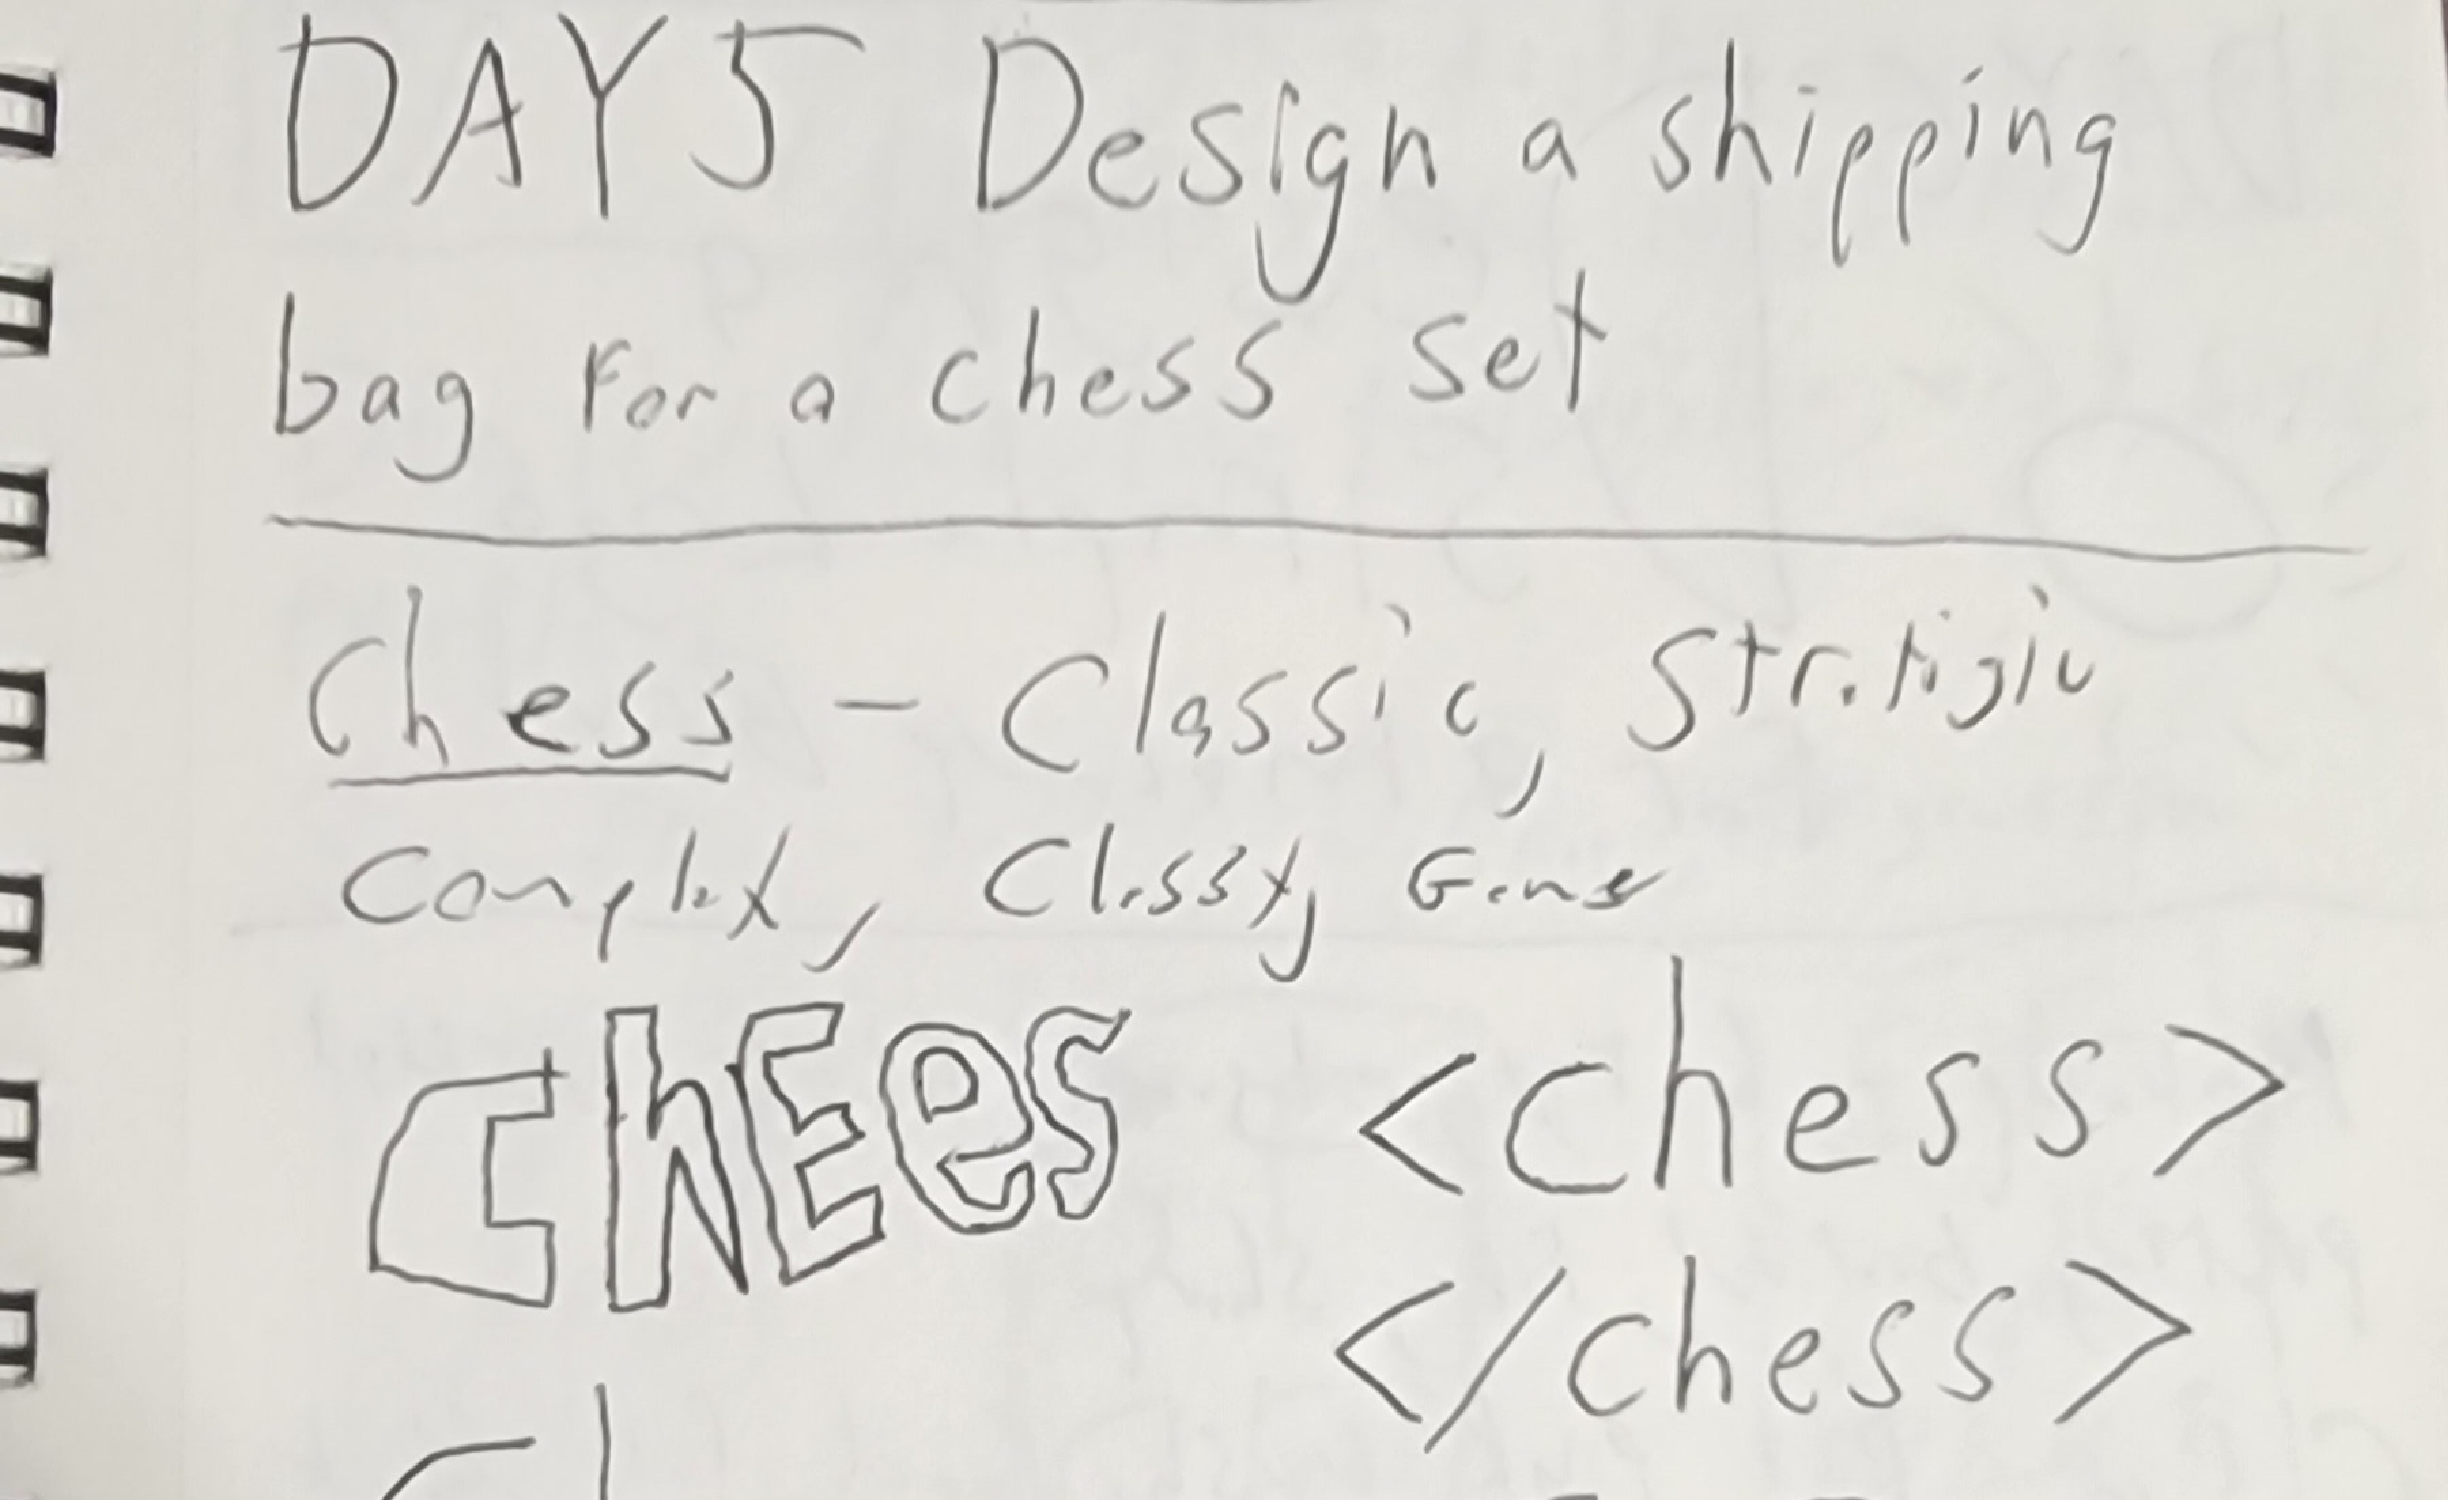 DAY 5 Design a shipping
bag For a chess set
Chess - Classic, Stratigic
Complex, Classy, Game
ChEes
<chess>
</chess>